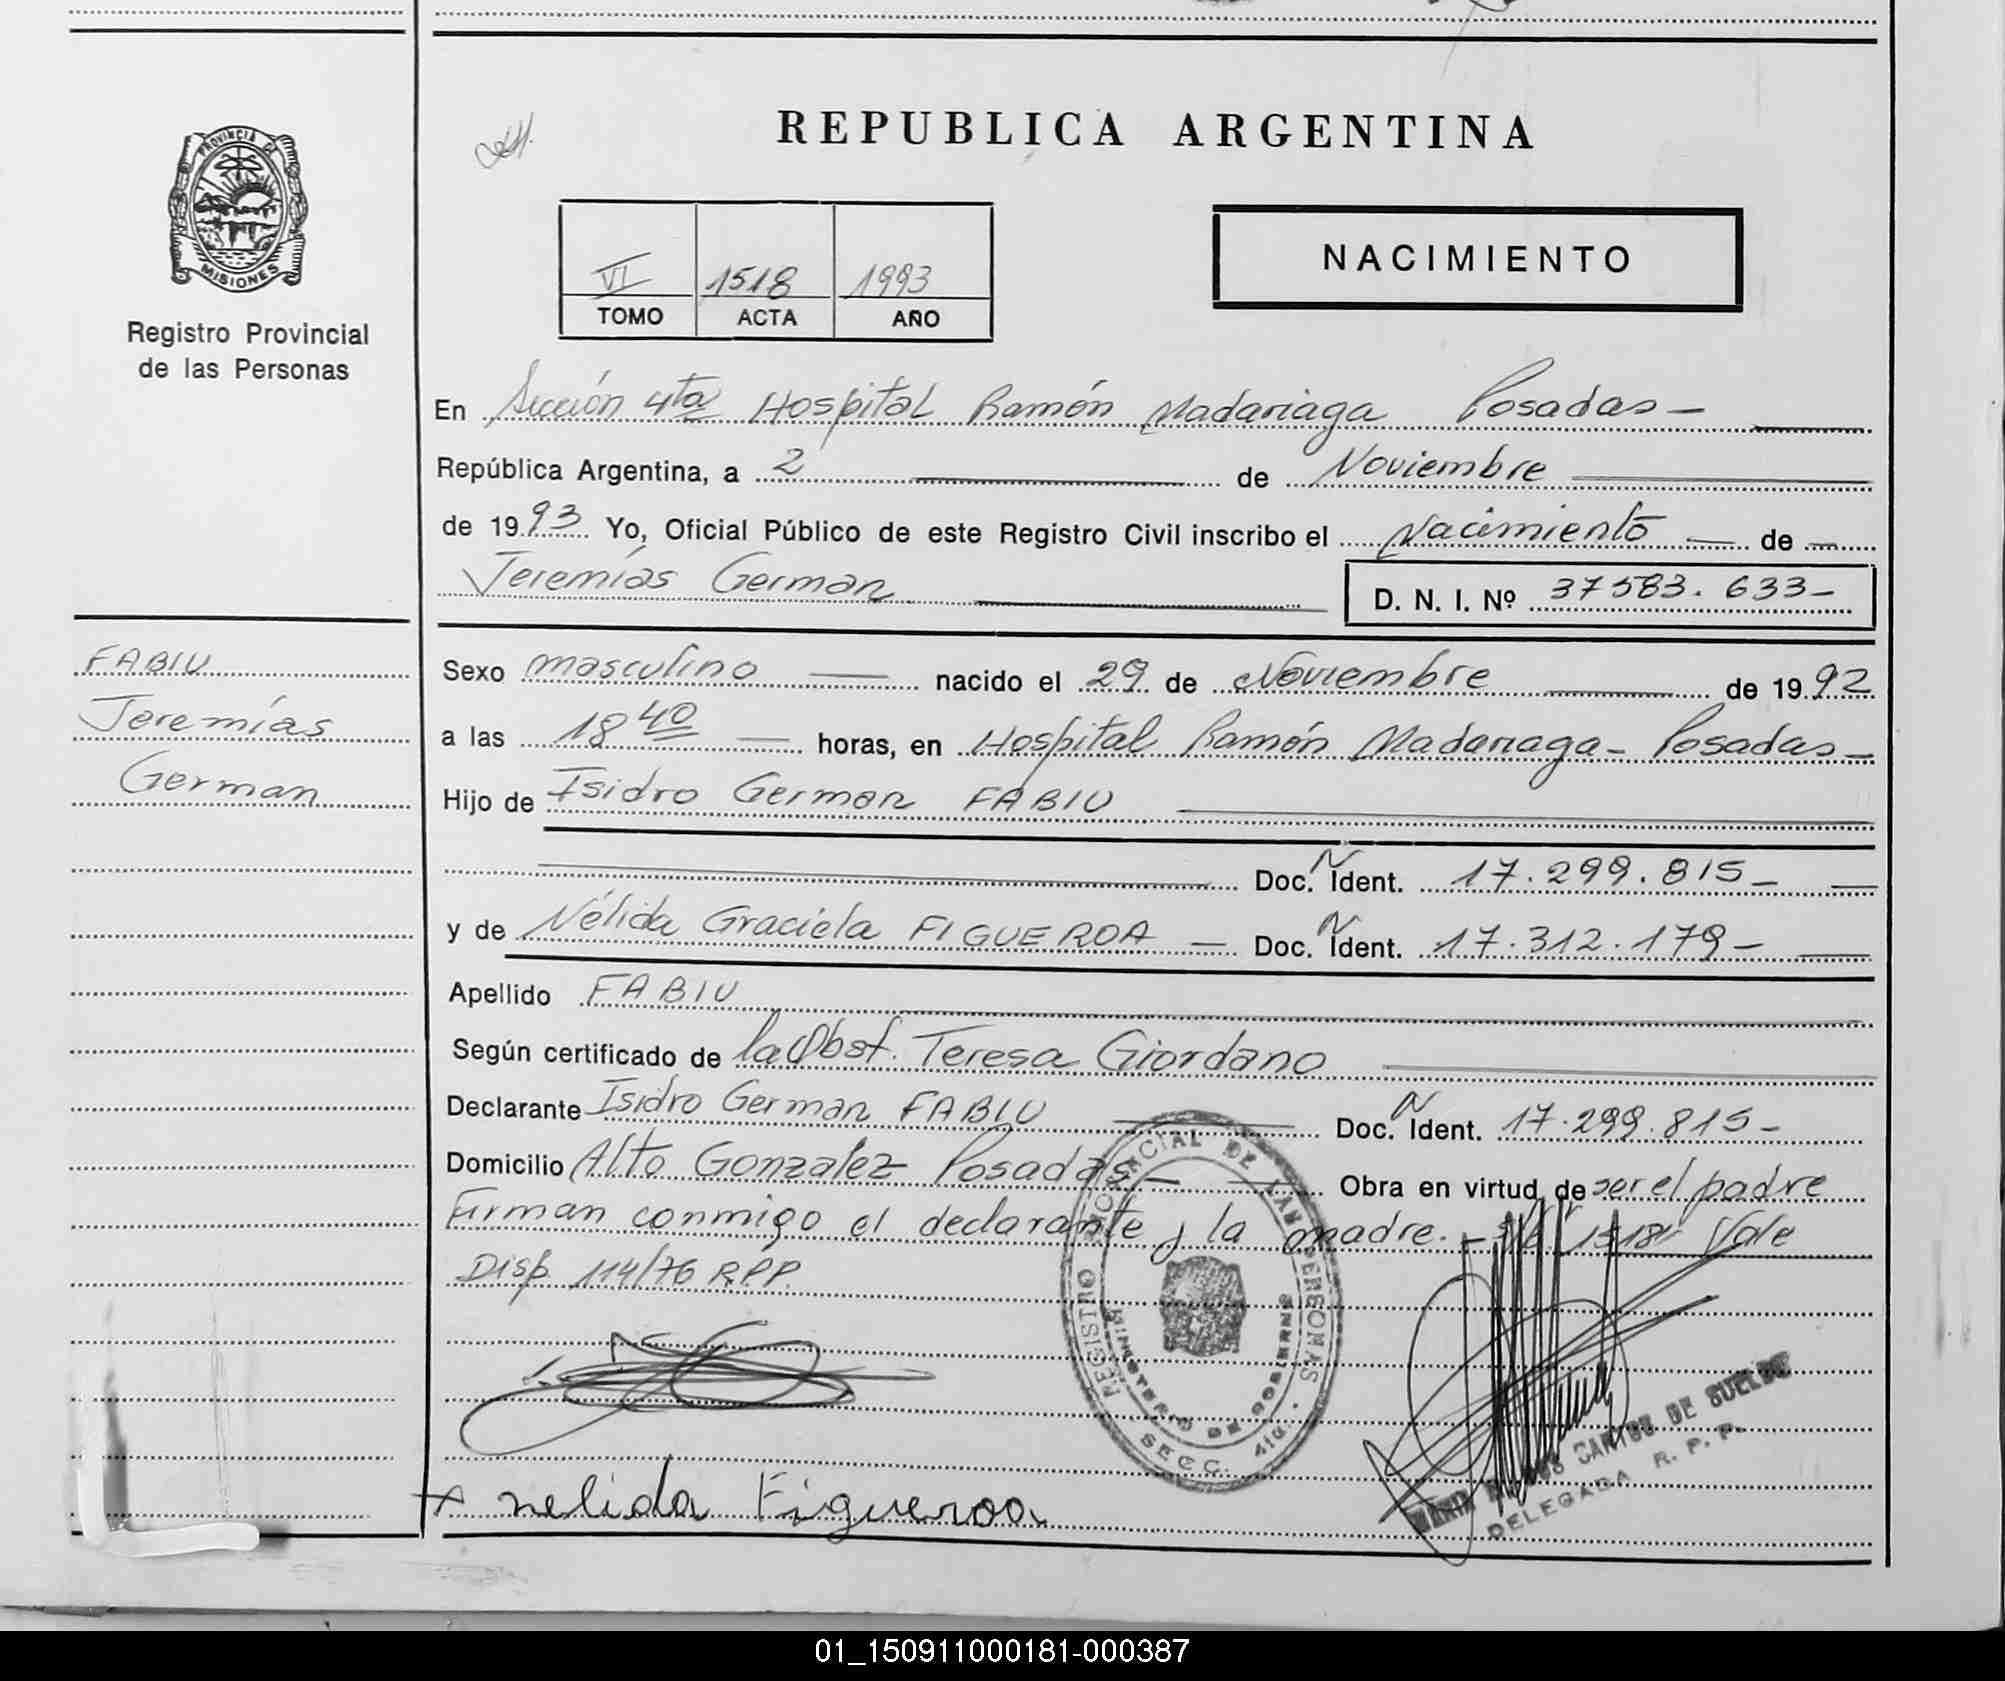 REPUBLICA ARGENTINA
PROVINCIA DE
MISIONES
Registro Provincial
de las Personas
VI 1518 1993
TOMO ACTA AÑO
NACIMIENTO
En Sección 4ta Hospital Ramón Madariaga Posadas —
República Argentina, a 2 de Noviembre
de 1993 Yo, Oficial Público de este Registro Civil inscribo el Nacimiento — de —
Jeremías German
D. N. I. Nº 37583.633-
FABIU
Jeremías
German
Sexo masculino — nacido el 29 de Noviembre — de 1992
a las 18 40 — horas, en Hospital Ramón Madariaga - Posadas -
Hijo de Isidro German FABIU
Doc. N Ident. 17.299.815-
y de Nélida Graciela FIGUEROA — Doc. N Ident. 17.312.179-
Apellido FABIU
Según certificado de la Obst. Teresa Giordano
Declarante Isidro German FABIU — Doc. N Ident. 17.299.815-
Domicilio Alto Gonzalez Posadas - Obra en virtud de ser el padre
Firman conmigo el declarante y la madre. - 1518 Vale
Disp. 114/76 R.P.P.
REGISTRO PROVINCIAL DE LAS PERSONAS
MINISTERIO DE GOBIERNO
SECC. 4ta.
nelida Figueroa
SANTOS DE SUELDO
DELEGADA R. P. P.
01_150911000181-000387